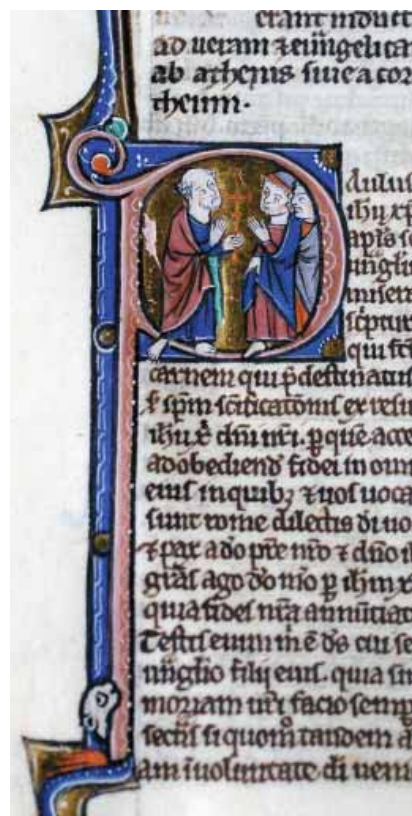 erant induct
ad ueram ⁊ euu̅gelica
ab athenis siue a cor
theum.
Paulus
ihu x
apl̅s
uu̅gli
sc̅ptur
qui fc̅
carnem qui p̅destinatus
sp̅m sc̅ificato̅nis ex resu
ihu x̅ dn̅i nr̅i. p̲ que̅ acce
ad obediend̅ fidei in om
eius in quib; ⁊ uos uoca
sunt rome dilectis di uo
⁊ pax a do pr̅e nr̅o ⁊ dn̅o i
gr̅as ago do mo p̲ ihm x
quia fides nr̅a annu̅ciat
Testis enim m̅ e̅ ds cui se
uu̅glio filij eius. quia sin
moriam ur̅i facio semp̲
si quom̊ tandem a
am i̅ uoluntate di ueni